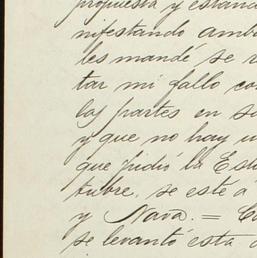 propuesta y estand
nifestando amb
les mandé se r
tar mi fallo co
las partes en s
y que no hay u
que pidió la Es
tubre, se esté á
y Nava. = C
se levantó esta a